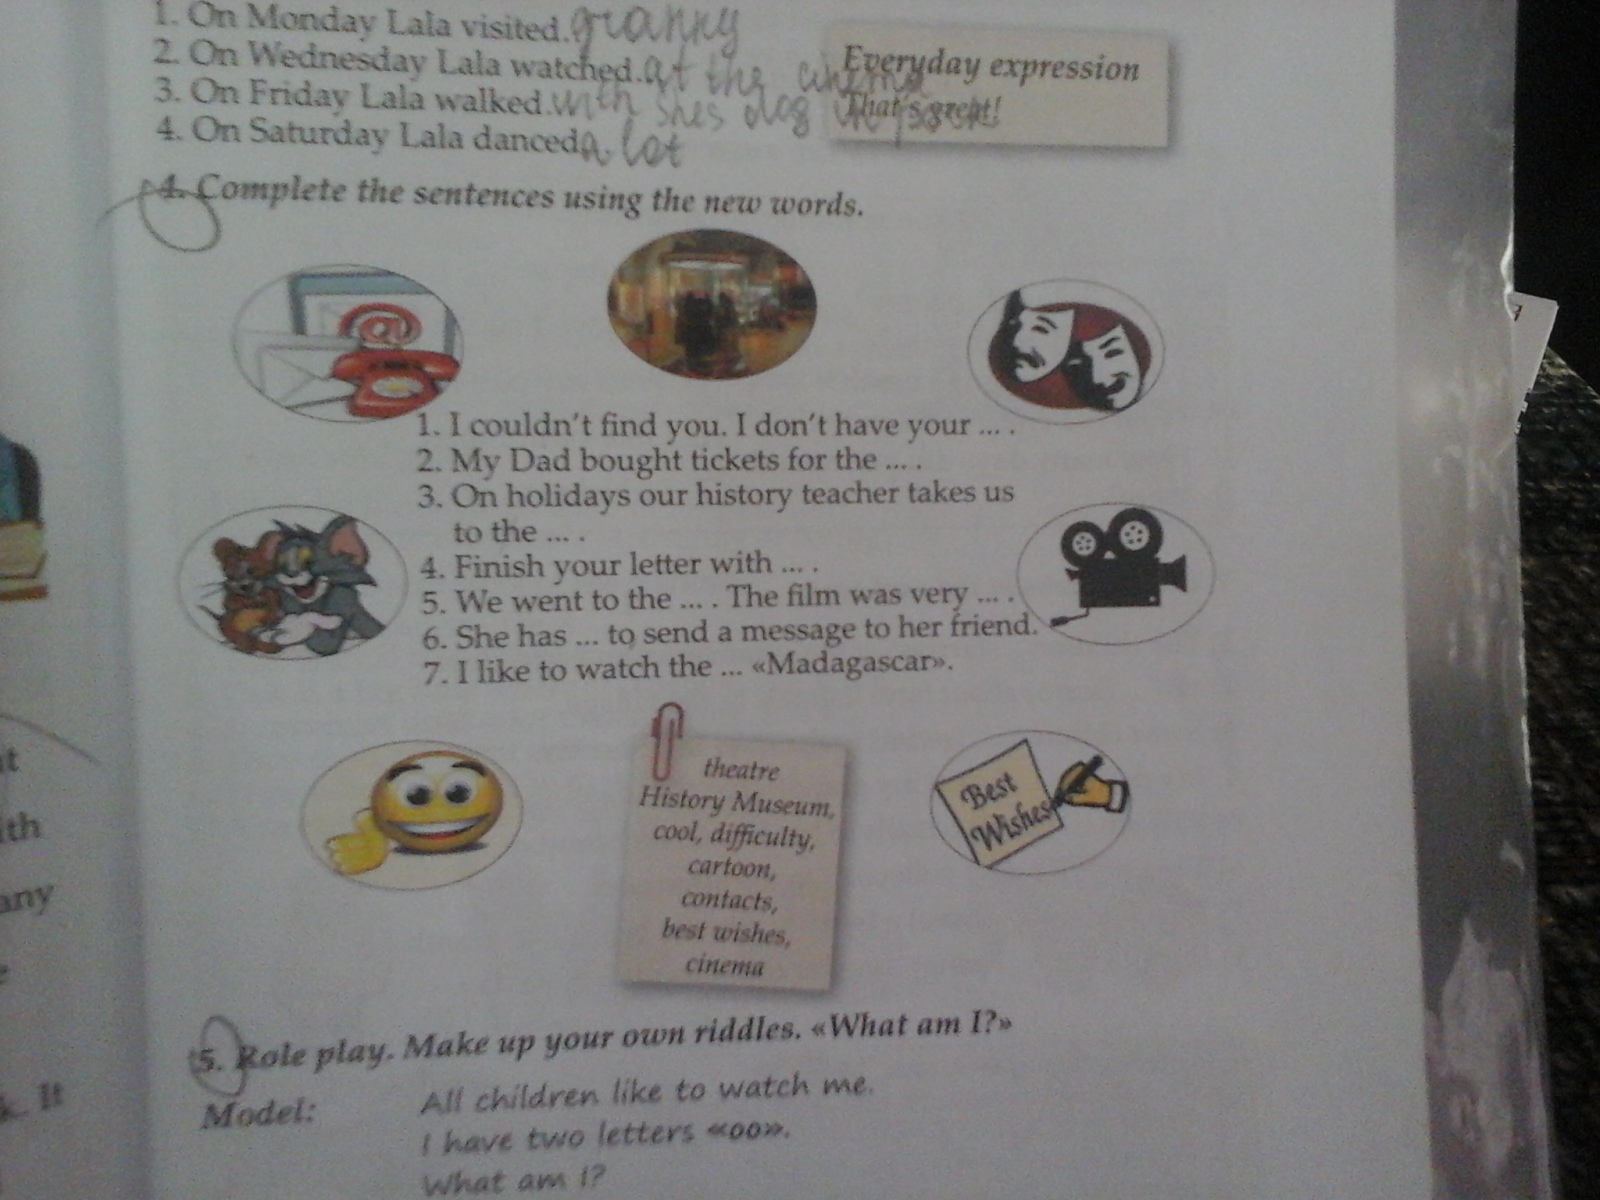 1. On Monday Lala visited. granny
2. On Wednesday Lala watched. at the cinema
3. On Friday Lala walked. with shes dog in park
4. On Saturday Lala danced a lot
Everyday expression
That's great!
4. Complete the sentences using the new words.
@
1. I couldn't find you. I don't have your ... .
2. My Dad bought tickets for the ... .
3. On holidays our history teacher takes us
to the ... .
4. Finish your letter with ... .
5. We went to the ... . The film was very ... .
6. She has ... to send a message to her friend.
7. I like to watch the ... «Madagascar».
theatre
History Museum,
cool, difficulty,
cartoon,
contacts,
best wishes,
cinema
Best
Wishes
5. Role play. Make up your own riddles. «What am I?»
Model:
All children like to watch me.
I have two letters «oo».
What am I?
ith
any
It